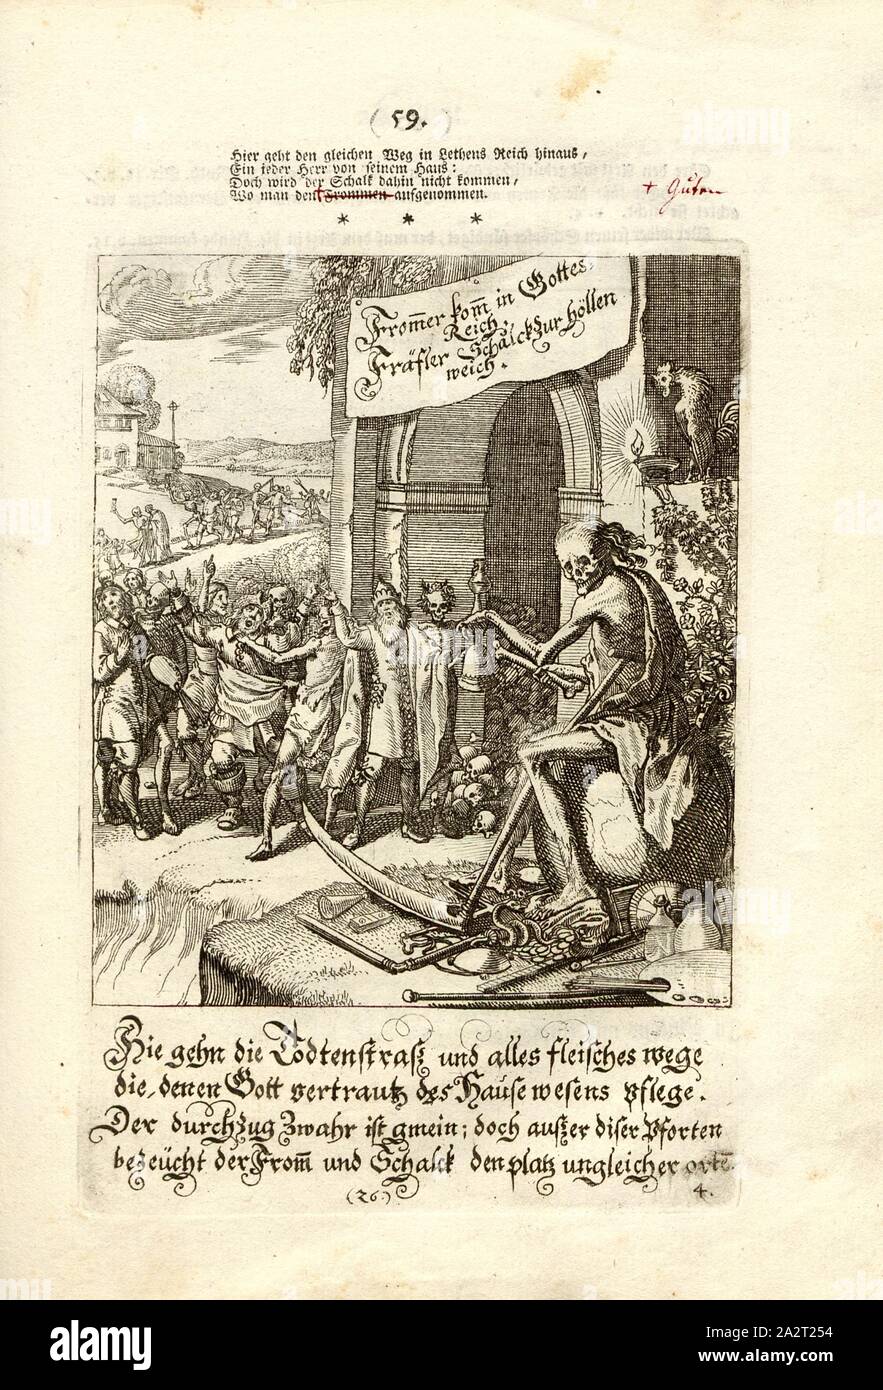 (59.)
Hier geht den gleichen Weg in Lethens Reich hinaus /
Ein jeder Herr von seinem Haus:
Doch wird der Schalk dahin nicht kommen /
Wo man den + Frommen aufgenommen.
+ Guten
* * *
From̃er kom̃ in Gottes-
Reich.
Fräfler Schalck zur höllen
weich.
Hie gehn die Todtenstraß und alles fleisches wege
die, denen Gott vertrautz des Hausewesens pflege.
Der durchzug Zwahr ist gmein; doch außer diser Pforten
bezeücht der From̃ und Schalck den platz ungleicher ortẽ.
(26.) 4.
alamy
alamy
Image ID: 2A2T254
www.alamy.com